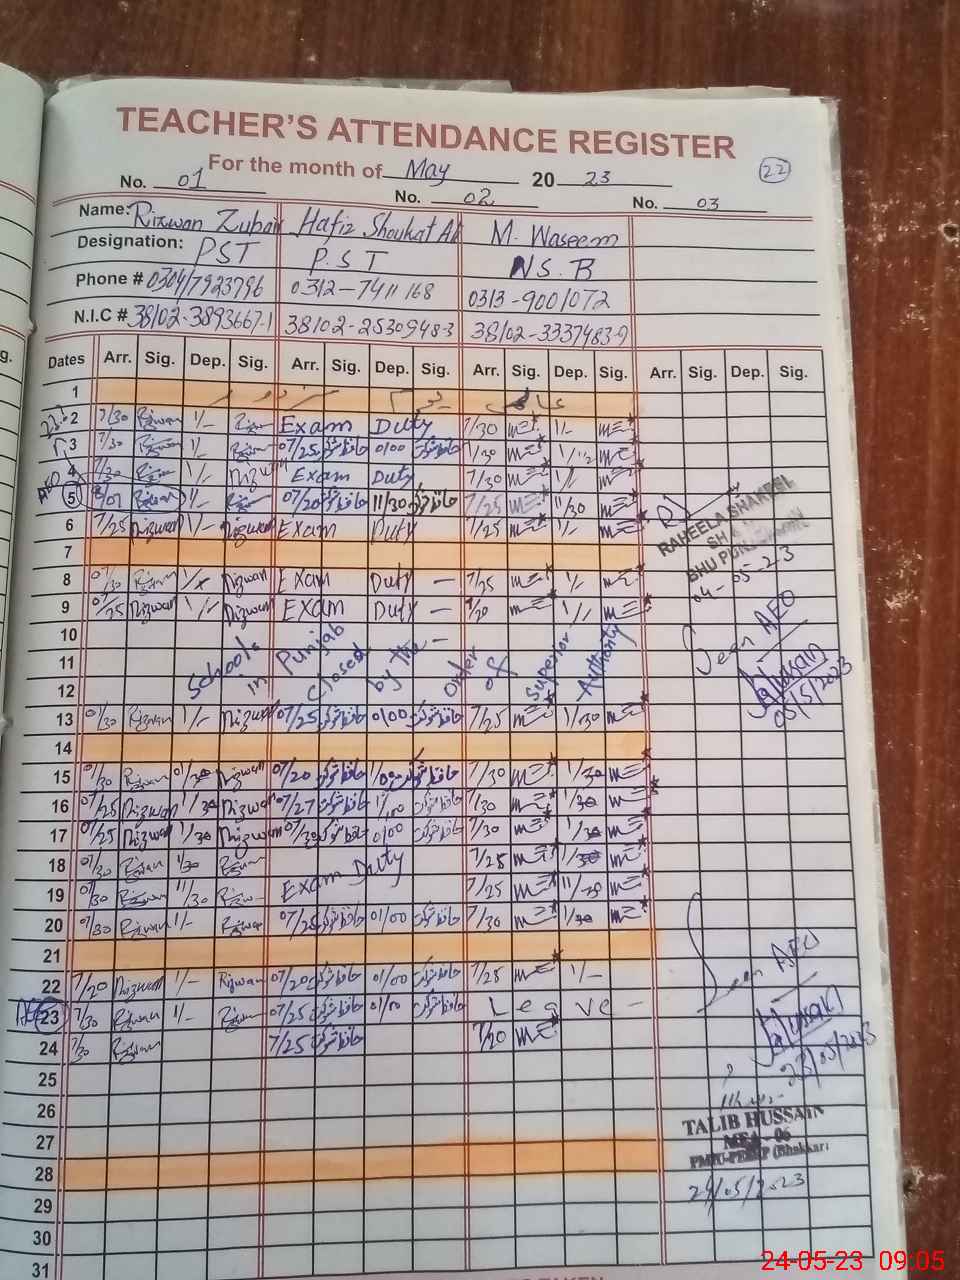 TEACHER'S ATTENDANCE REGISTER
For the month of May 2023 22
No. 01 No. 02 No. 03
Name: Rizwan Zubair Hafiz Shoukat Ali M. Waseem
Designation: PST P.S.T N.S.B
Phone # 0304/7923796 0312-7411168 0313-9001072
N.I.C # 38102-3893667-1 38102-2530948-3 38102-3337483-9
Dates Arr. Sig. Dep. Sig. Arr. Sig. Dep. Sig. Arr. Sig. Dep. Sig. Arr. Sig. Dep. Sig.
1
2 7/30 Rizwan 1/- Rizwan Exam Duty 7/30 1/-
3 7/30 Rizwan 1/- Rizwan 07/25 حافظ شوکت 01/00 حافظ شوکت 7/30
4 7/30 1/- Rizwan Exam Duty 7/30 1/-
5 Rizwan 1/- 07/20 حافظ شوکت 11/30 حافظ شوکت 7/25 11/30
6 7/25 Rizwan 1/- Rizwan Exam Duty 7/25 1/-
RAHEELA SHAKEEL
7
8 07/30 Rizwan Rizwan Exam Duty - 7/25 1/-
04-05-23
9 07/25 Rizwan 1/- Rizwan Exam Duty - 1/-
10
11 Schools in Punjab closed by the - order of Superior Authority
12
Seen AEO
Hussain
05/5/2023
13 07/30 Rizwan 1/- Rizwan 07/25 حافظ شوکت 01/00 حافظ شوکت 7/25 1/30
14
15 07/30 Rizwan 01/30 Rizwan 07/20 حافظ شوکت 1/00 حافظ شوکت 7/30 1/30
16 07/25 Rizwan 1/30 Rizwan 07/27 حافظ شوکت 1/00 حافظ شوکت 7/30 1/30
17 07/25 Rizwan 1/30 Rizwan 07/30 حافظ شوکت 01/00 حافظ شوکت 7/30 1/30
18 07/30 Rizwan 1/30 Rizwan Exam Duty 7/25 1/30
19 07/30 Rizwan 11/30 Rizwan 7/25 11/30
20 07/30 Rizwan 1/- Rizwan 07/25 حافظ شوکت 01/00 حافظ شوکت 7/30 1/30
21
22 7/20 Rizwan 1/- Rizwan 07/20 حافظ شوکت 01/00 حافظ شوکت 7/25 1/-
Seen AEO
23 7/30 Rizwan 1/- Rizwan 07/25 حافظ شوکت 01/00 حافظ شوکت Leave -
Hussain
23/05/2023
24 7/30 Rizwan 7/25 حافظ شوکت 7/20
25
26
TALIB HUSSAIN
MEA - 06
(Bhakkar)
27
28
24/05/2023
29
30
31
24-05-23 09:05